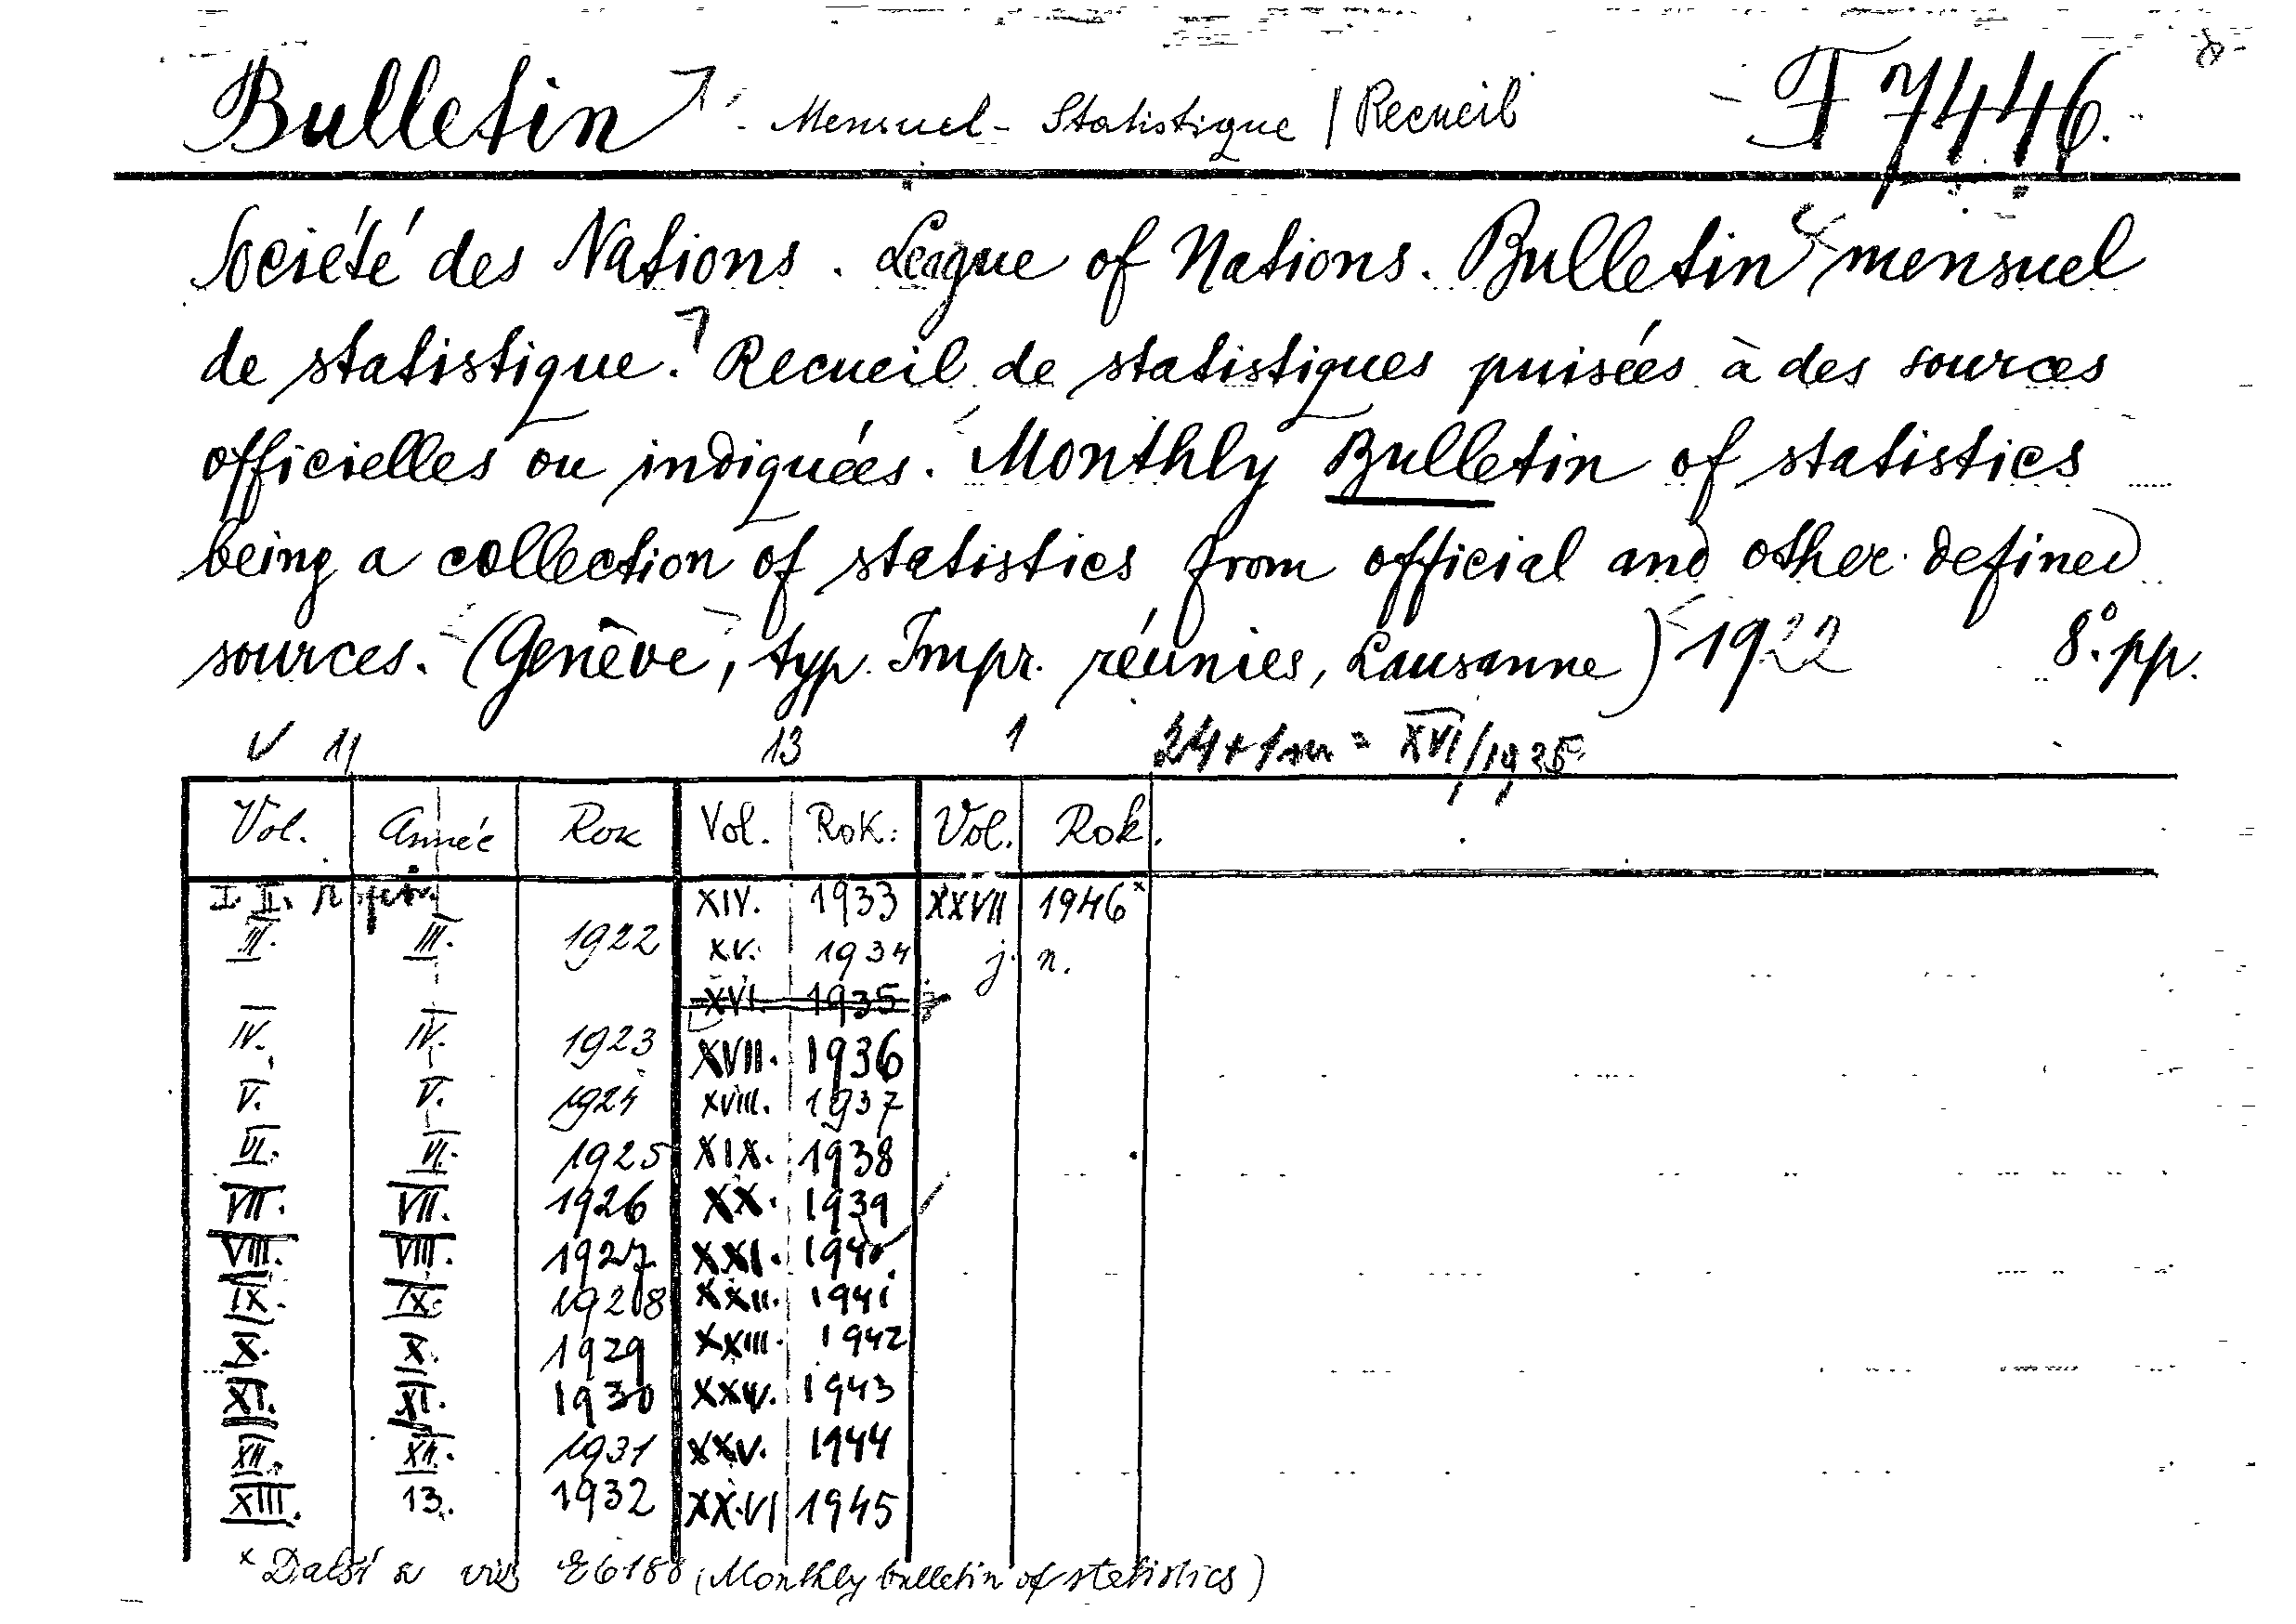 Bulletin - Mensuel - Statistique / Recueil F 7446.
Société des Nations. League of Nations. Bulletin mensuel
de statistique. Recueil de statistiques puisées à des sources
officielles ou indiquées. Monthly Bulletin of statistics
being a collection of statistics from official and other defined
sources. (Genève, typ. Impr. réunies, Lausanne) 1922 8° pp.
11 13 1 24+1 = XVI/1935
Vol. Année Rok Vol. Rok. Vol. Rok.
I. II. XIV. 1933 XXVII 1946x
III. III. 1922 XV. 1934 j. n.
XVI. 1935
IV. IV. 1923 XVII. 1936
V. V. 1924 XVIII. 1937
VI. VI. 1925 XIX. 1938
VII. VII. 1926 XX. 1939
VIII. VIII. 1927 XXI. 1940
IX. IX. 1928 XXII. 1941
X. X. 1929 XXIII. 1942
XI. XI. 1930 XXIV. 1943
XII. XII. 1931 XXV. 1944
XIII. 13. 1932 XXVI 1945
x Další viz (Monthly bulletin of statistics)